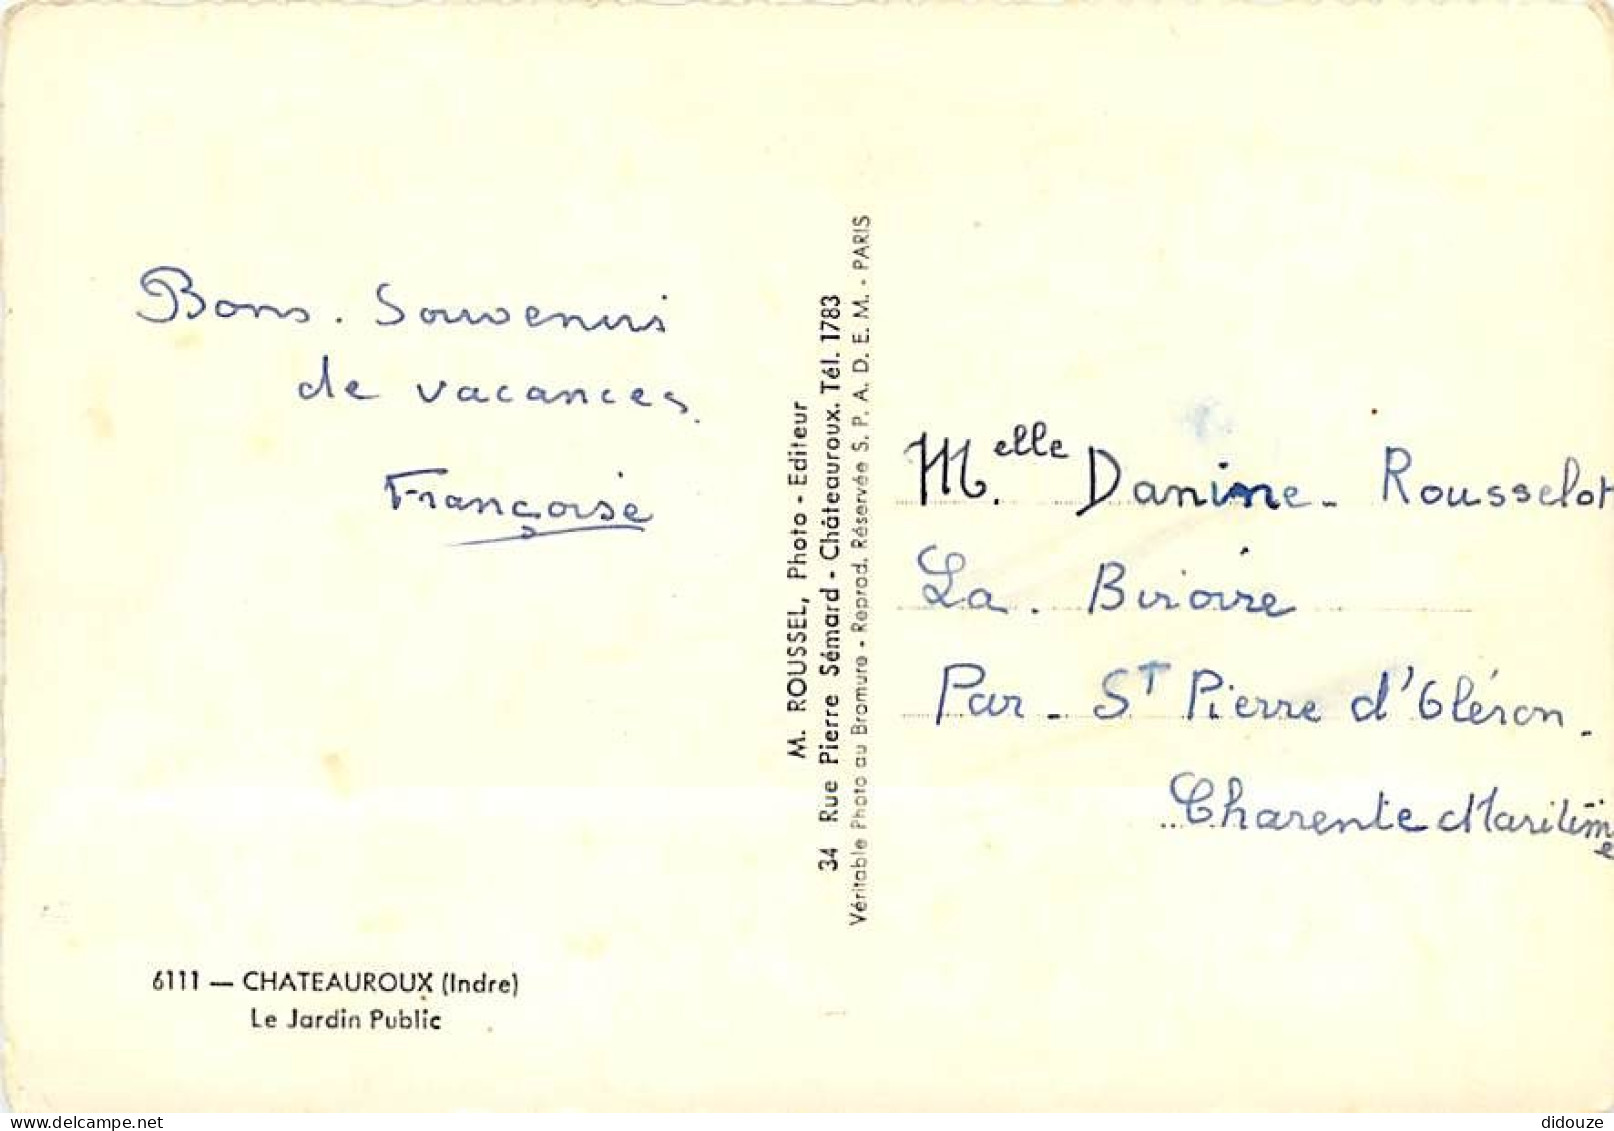 Bons. Souvenirs
de vacances.
Françoise
6111 — CHATEAUROUX (Indre)
Le Jardin Public
M. ROUSSEL, Photo - Editeur
34 Rue Pierre Sémard - Châteauroux. Tél. 1783
Véritable Photo au Bromure - Reprod. Réservée S. P. A. D. E. M. - PARIS
M.elle Danine - Rousselot
La. Biroire
Par - ST Pierre d'Oléron.
Charente Maritime
delcampe.net
didouze